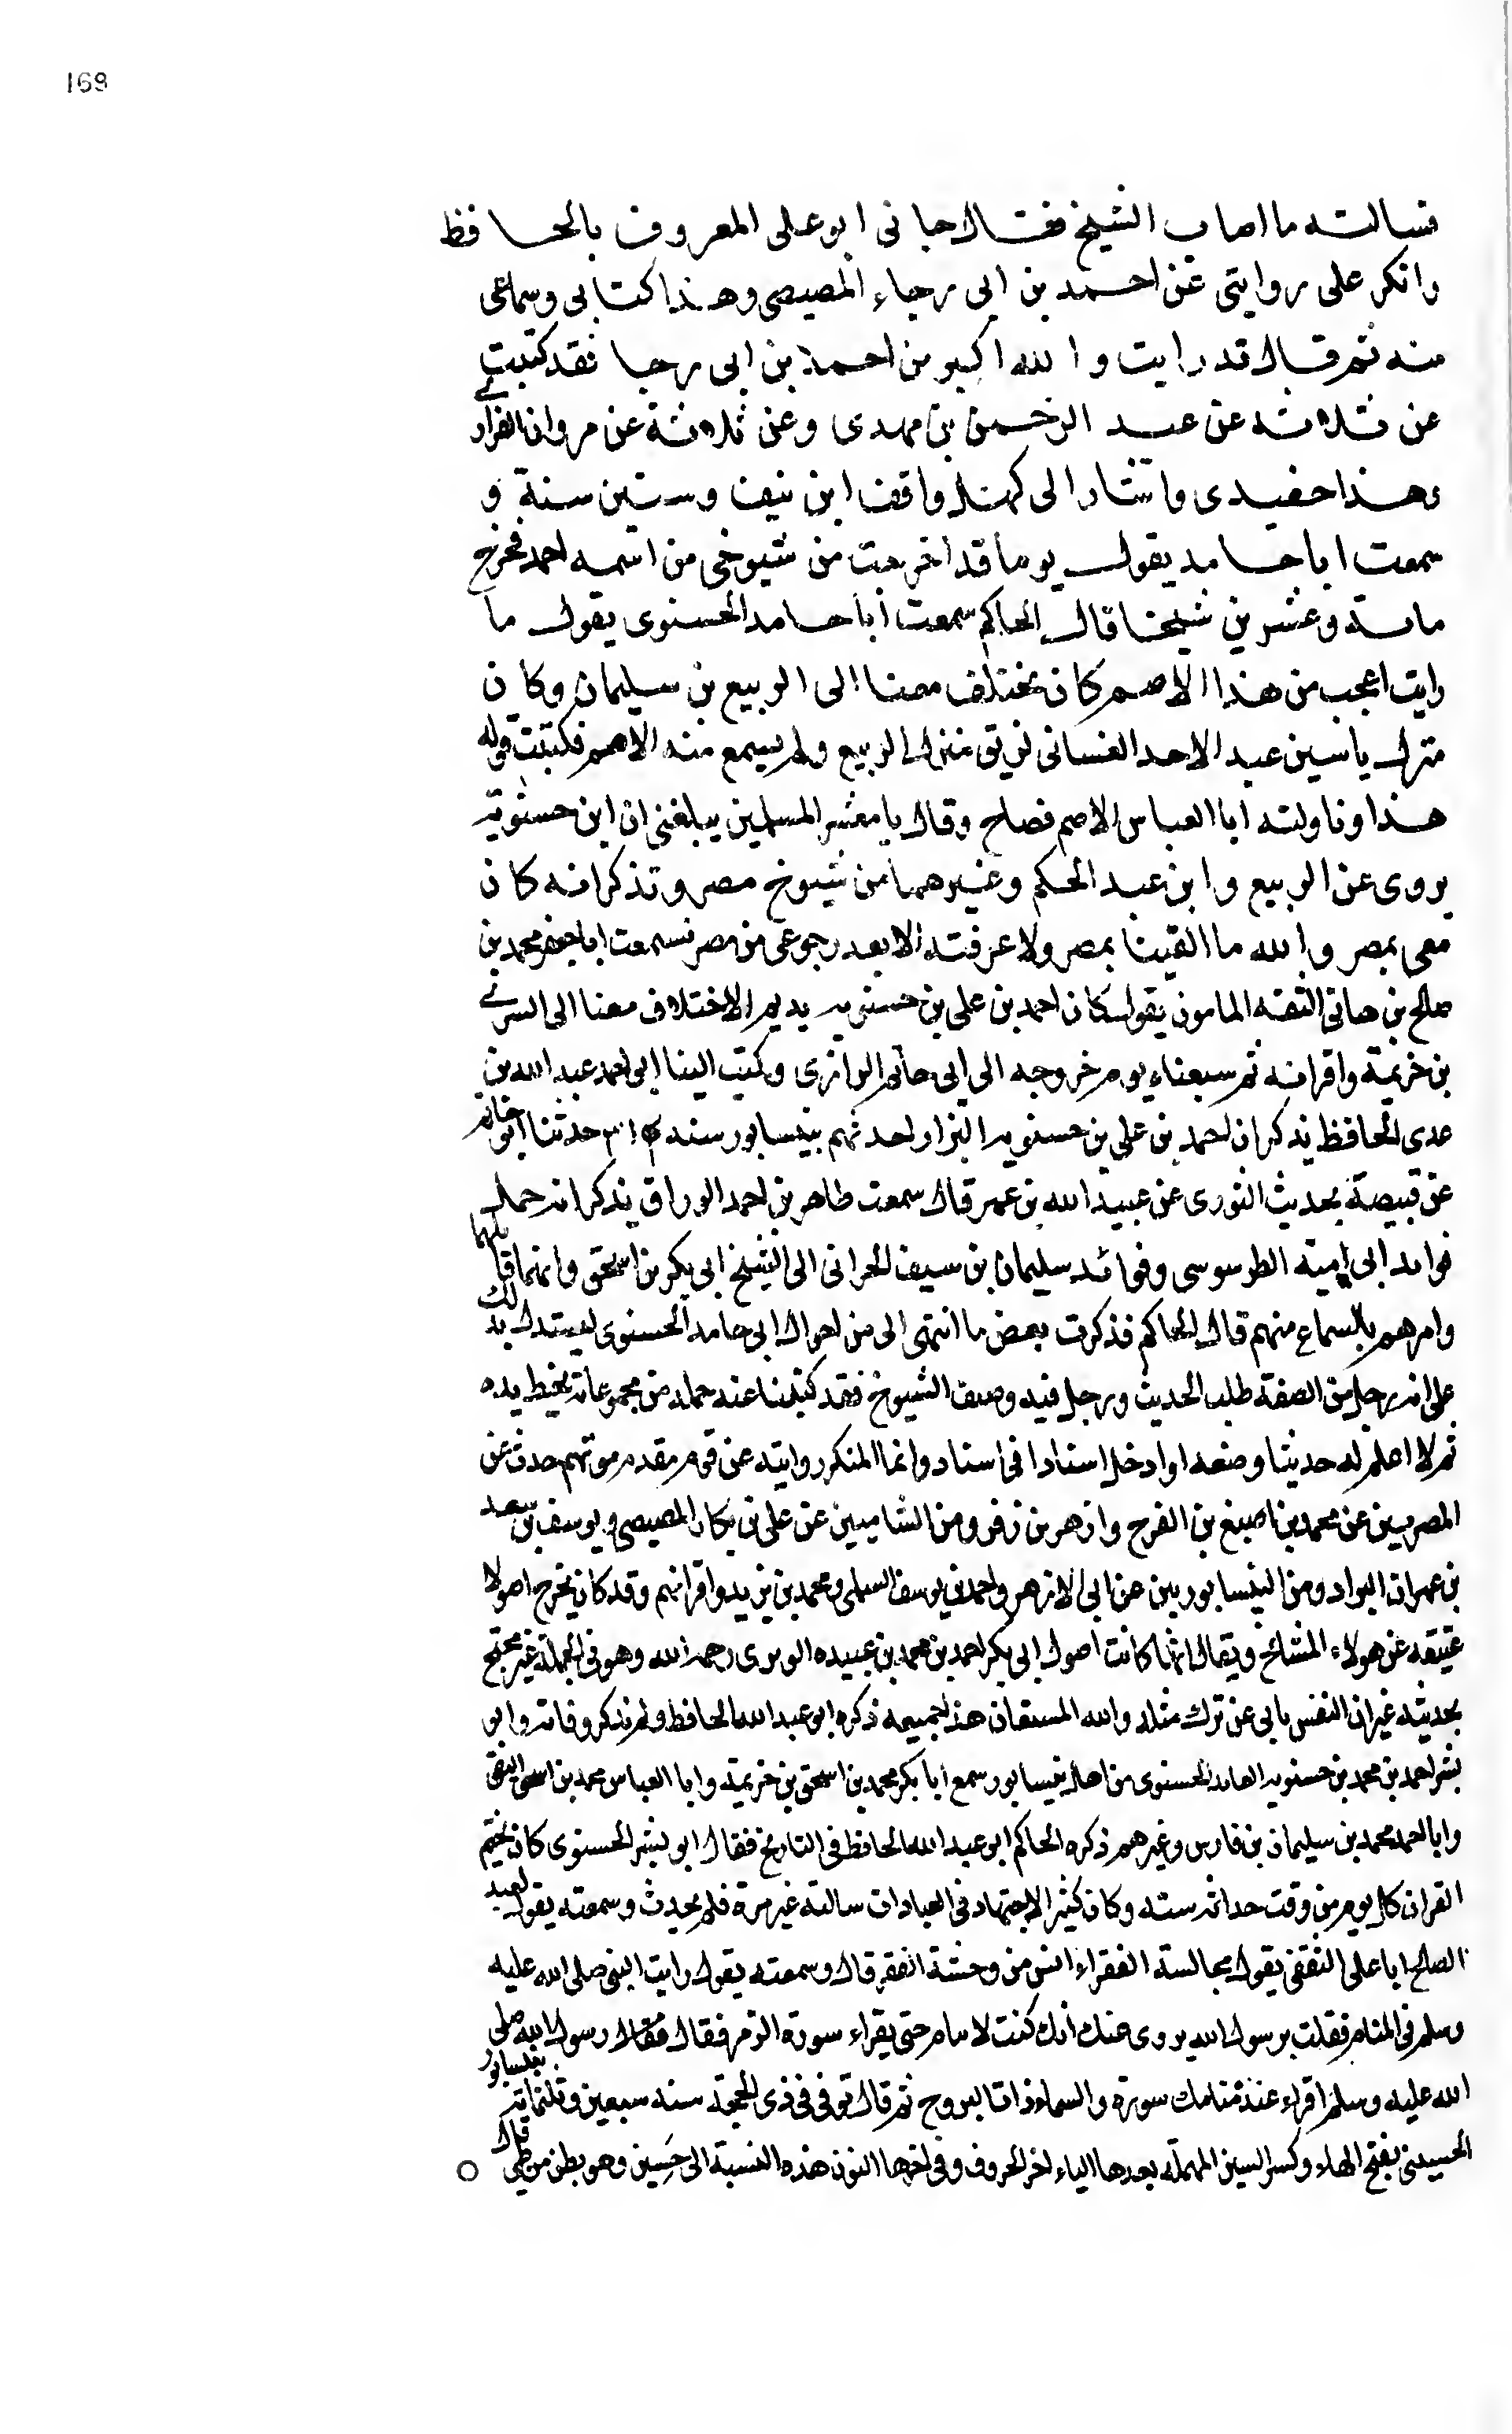 168
فسالته ما اصاب الشيخ فقال جانى ابو على المعروف بالحافظ
وانكر على روايتى عن احمد بن ابى رجاء المصيصى وهذا كتابى وسماعى
منه ثم قال قد رايت والله اكبر من احمد بن ابى رجا فقد كتبت
عن ثلاثة عن عبد الرحمن بن مهدى وعن ثلاثة عن مروان الفزارى
وهذا حفيدى واشار الى كهل واقف ابن نيف وستين سنة و
سمعت ابا حامد يقول يوما قد اخرجت من شيوخى من اسمه احمد فخرج
مائة وعشرين شيخا قال الحاكم سمعت ابا حامد الحسنوى يقول ما
رايت اعجب من هذا الاصم كان يختلف معنا الى الربيع بن سليمان وكان
منزل ياسين عبد الاحد الغسانى لزيق منزل الربيع ولم يسمع منه الاصم فكتبت قوله
هذا وناولته ابا العباس الاصم فصاح وقال يا معشر المسلمين يبلغنى ان ابن حسنويه
يروى عن الربيع وابن عبد الحكم وغيرهما من شيوخ مصر وتذكر انه كان
معى بمصر والله ما القينا بمصر ولا عرفته الا بعد رجوعى من مصر فسمعت ابا جعفر محمد بن
صالح بن هانى الثقة المامون يقول كان احمد بن على بن حسنويه يديم الاختلاف معنا الى السرى
بن خزيمة واقرانه ثم سبعناه يوم خروجه الى ابى حاتم الرازى وكتب الينا ابو احمد عبد الله بن
عدى الحافظ يذكر ان احمد بن على بن حسنويه البزار احد نهم بنيسابور سنه حدثنا ابو حاتم
عن قبيصة بحديث الثورى عن عبيد الله بن عمر قال سمعت طاهر بن احمد الوراق يذكر انه حمل
فوايد ابى امية الطرسوسى وفوائد سليمان بن سيف الحرانى الى الشيخ ابى بكر بن اسحق وانهما قابلهما
وامرهم بالسماع منهم قال الحاكم فذكرت بعض ما انتهى الى من احوال ابى حامد الحسنوى ليستدل بذلك
على انه رجل من الصفة طلب الحديث ورحل فيه وصنف الشيوخ فقد كتبنا عنه جملة من مجموعاته بخط يده
ثم لا اعلم له حديثا وضعه او ادخل اسنادا فى اسناد وانما المنكر روايته عن قوم مقدم موتهم حدث عن
المصريين عن محمد بن اصبغ بن الفرج وازهر بن زفر ومن الشاميين عن على بن بكار المصيصى ويوسف بن سعد
بن عمران البواد ومن النيسابوريين عن ابى الازهر واحمد بن يوسف السلمى ومحمد بن يزيد واقرانهم وقد كان يخرج اصولا
عتيقه عن هولاء المشائخ ويقال انها كانت اصول ابى بكر احمد بن محمد بن عبيده الوبرى رحمه الله وهو فى الجملة غير محتج
بحديثه غير ان النفس يابى عن ترك مثله والله المستعان هذا جميعه ذكره ابو عبد الله الحافظ ولم يذكر وفاته وابو
بشر احمد بن محمد بن حسنويه العابد الحسنوى من اهل نيسابور سمع ابا بكر محمد بن اسحق بن خزيمة وابا العباس محمد بن اسحق الثقفى
وابا احمد محمد بن سليمان بن فارس وغيرهم ذكره الحاكم ابو عبد الله الحافظ فى التاريخ فقال ابو بشر الحسنوى كان يختم
القران كل يوم من وقت حداثه سنه وكان كثير الاجتهاد فى العبادات سالته غير مرة فلم يحدث وسمعته يقول لعبد
الصالح ابا على الثقفى يقول مجالسة الفقراء انس من وحشة الفقر قال وسمعته يقول رايت النبى صلى الله عليه
وسلم فى المنام فقلت يرسول الله يروى عنك انك كنت لا تنام حتى يقراء سورة الزمر فقال فقال رسول الله صلى
الله عليه وسلم اقراء عند منامك سورة والسماء ذات البروج ثم قال توفى فى ذى الحجة سنه سبعين وثلثمائة بنيسابور
الحسينى بفتح الهاء وكسر السين المهملة بعدها الياء اخر الحروف وفى اخرها النون هذه النسبة الى حَسِين وهو بطن من طى قال